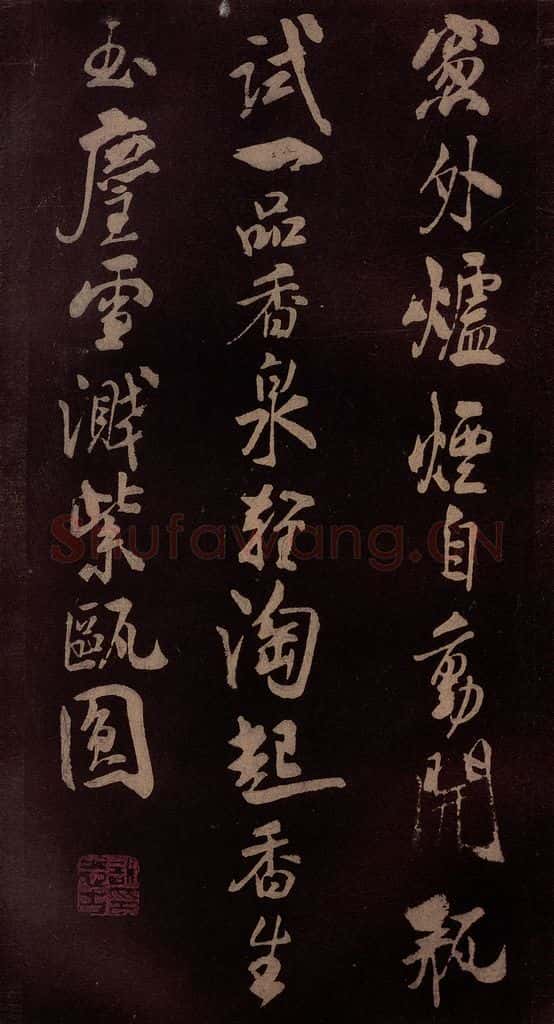 窗外爐煙自動開瓶
試一品香泉輕淘起香生
玉塵雪濺紫甌圓
Shufawang.CN